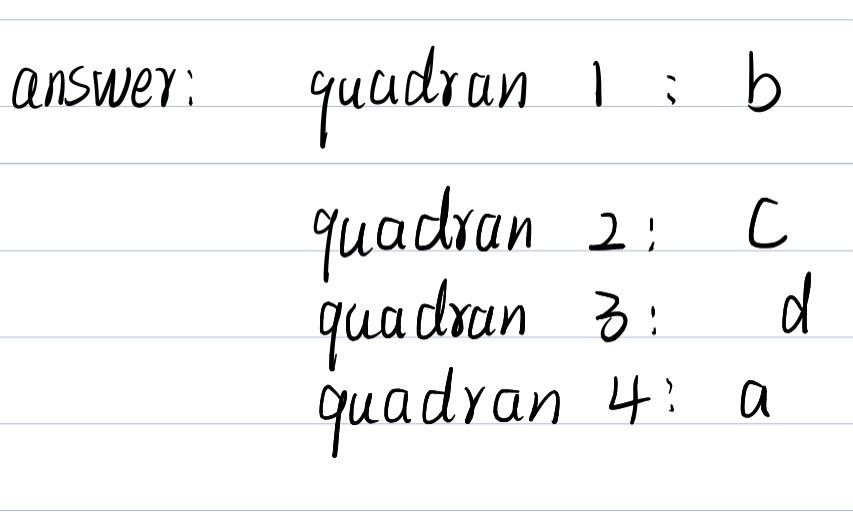 answer: quadran 1 : b
quadran 2 : c
quadran 3 : d
quadran 4 : a